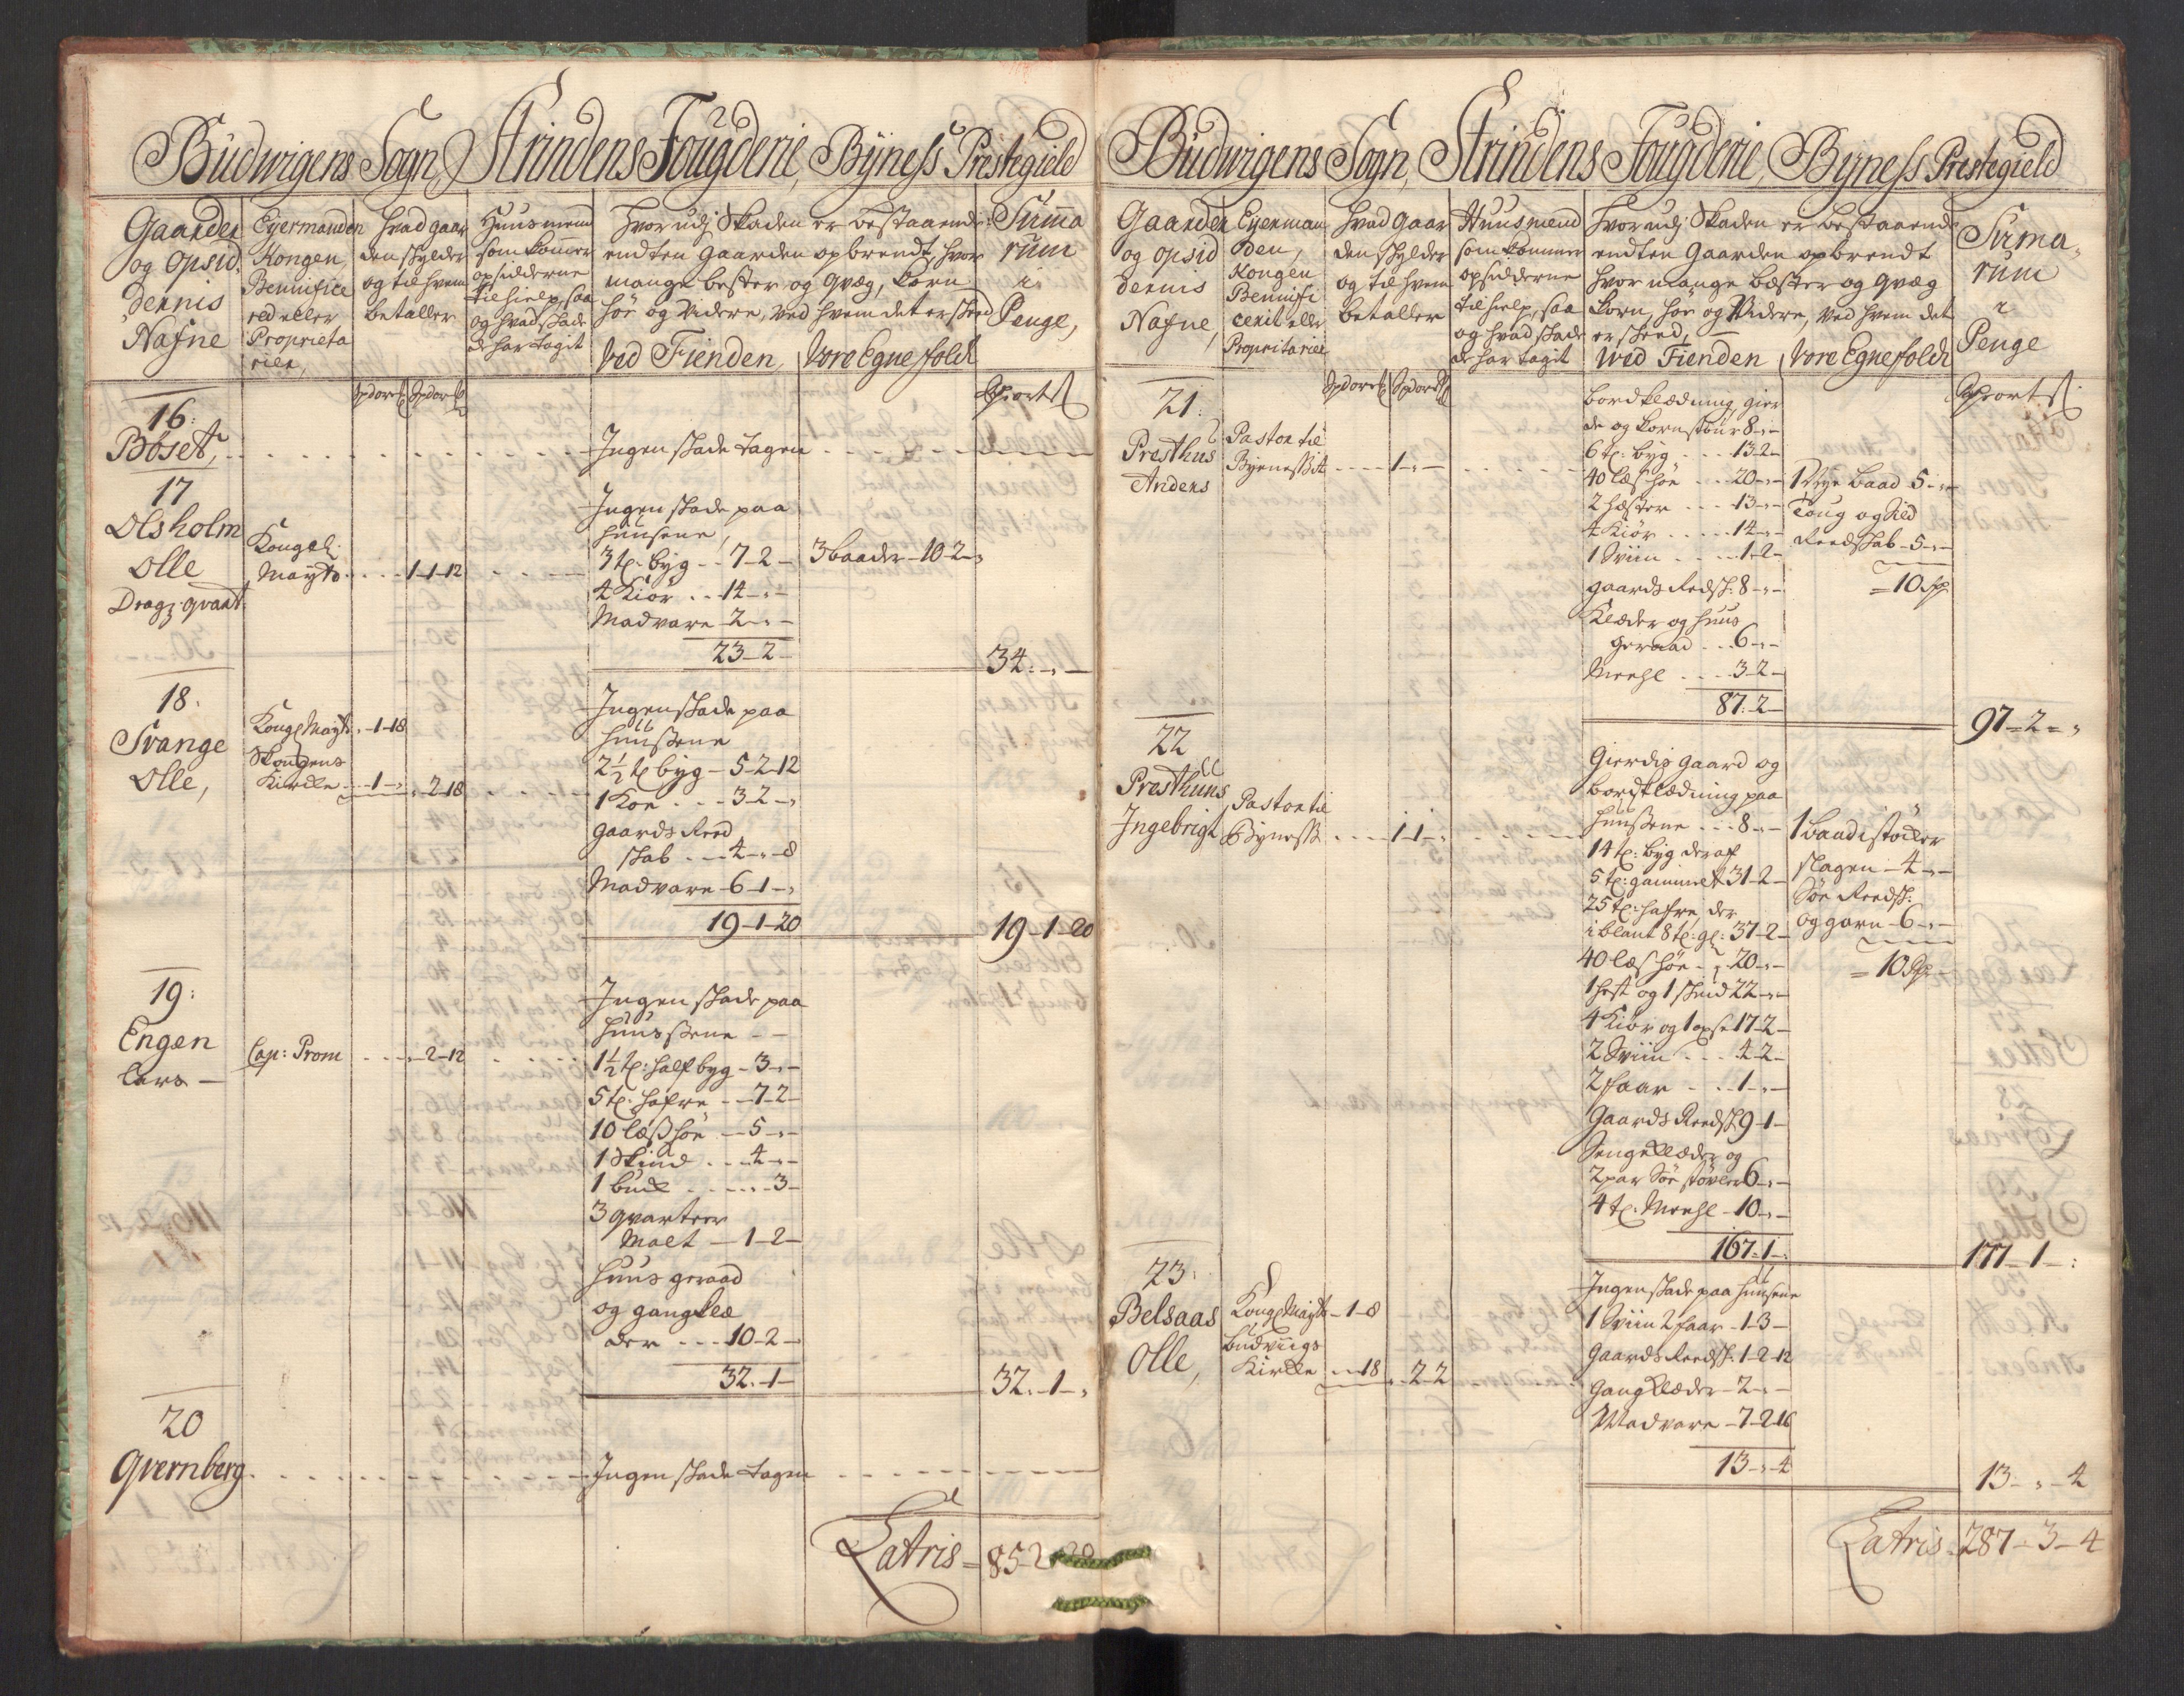 Büdwigens Sogn, Strindens Foügderie, Bÿness Prestegield
Gaarden
og Opsid:
dernis
Nafne
Eyermanden
Kongen
Benificered eller
Proprieta
rier,
hvad gaar
den skylder
og til hvem
betaller
Huusmend
som kommer
opsidderne
til hielp, saa
og hvad skade
de har tagit
Hvorudj Skaden er bestaaende
endten gaarden opbrendt, hvor
mange bester og qvæg, korn
høe og Videre, ved hvem det er skeed
Ved Fienden, Vore Egne folch
Summa
rum
i
Penge,
16:
Boset,
Ingen skade tagen
17
Olsholm
Olle
Drag: qvart.
Kongel:
Mayts
1-1-12
Ingen skade paa
huusene,
3 t: byg 7-2-
4 Kiör 14-"-
Madvare 2-"-
23-2-
3 baader 10-2-"
34-"-
18.
Svange
Olle,
Kongl Mayts 1-18
Skougens
Kirche 1-" 2-18
Ingen skade paa
huussene
2½ t byg 5-2-12
1 Koe 3-2-"
gaards Reed
skab 4-"-8
Madvare 6-1-"
19-1-20
19-1-20
19:
Engen
Lars
Cap: Prom
2-12
Ingen skade paa
huussene
1½ t: half byg 3-"-
5 t: hafre 7-2-
10 læss höe 5-"-
1 Skiud 4-"-
1 buck 3-
3 qvarteer
Malt 1-2-
huus geraad
og gangklæ
der 10-2-
32-1-
32-1-"
20
Qvernberg
Ingen skade tagen
Latris 85-2-20
Büdwigens Sogn, Strindens Foügderie, Byness Prestegield
Gaarden
og opsid
dernis
Nafne,
Eyerman
den,
Kongen
Benifi
cerit eller
Propritarier
hvad Gaar
den skylder
og til hvem
betaller
Huusmend
som kommer
opsidderne
til hielp, saa
og hvad skade
de har tagit
Hvorudj Skaden er bestaaende
endten Gaarden opbrendt
hvor mange bæster og qvæg
korn, höe og Videre, ved hvem det
er skeed,
Wed Fienden, Vore Egne folch
Suma
rum
i
Penge
21:
Presthus
Anders
Pastor til
Byeness
1-"-
bordklædning gier
de og kornstöur 8-"-
6 t: byg 13-2-
40 læs höe 20-"-
2 hæster 13-"-
4 Kiör 14-"-
1 Sviin 1-2-
gaards Redsk: 8-"-
Klæder og huus
geraad 6-"-
Meehl 3-2-
87-2-
1 Nye baad 5-"-
Toug og Sild
Reedskab 5-"-
10 Sp
97-2-"
22
Presthuus
Ingebrigt
Pastor til
Byness
1-1-"
Gierdis gaard og
bordklædning paa
huussene 8-"-
14 t: byg deraf
5 t: gammelt 31-2-
25 t: hafre, der
iblant 8 t: gl: 37-2-
40 læs höe 20-"-
1 hest og 1 skiud 22-"-
4 Kiör og 1 oxse 17-2-
2 Sviin 4-2-
2 faar 1-"-
Gaards Reedsk 9-1-
Sengeklæder og
2 par Söe støvler 6-"-
4 t: Meehl 10-"-
167-1-
1 baad i støcker
slagen 4-"-
Söe Reedsk:
og garn 6-"-
10 Sp
177-1-
23
Belsaas
Olle,
Kongl Mayts 1-8
Budviigs
Kirche 18 2-2
Ingen skade paa huusene
1 Sviin 2 faar 1-3-
Gaards Reedsk: 1-2-12
Gangklæder 2-"-
Madvare 7-2-16
13-"-4
13-"-4
Latris 287-3-4